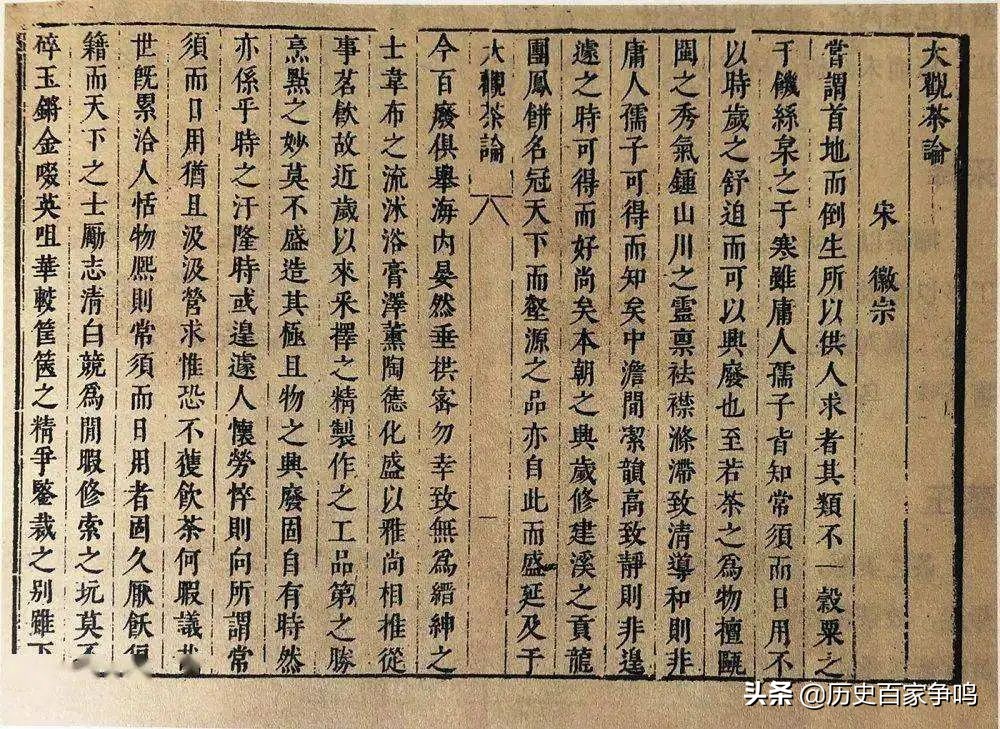 大觀茶論
宋 徽宗
嘗謂首地而倒生所以供人求者其類不一穀粟之
于饑絲枲之于寒雖庸人孺子皆知常須而日用不
以時歲之舒迫而可以興廢也至若茶之為物擅甌
閩之秀氣鍾山川之靈禀袪襟滌滯致清導和則非
庸人孺子可得而知矣中澹閒潔韻高致靜則非遑
遽之時可得而好尚矣本朝之興歲修建溪之貢龍
團鳳餅名冠天下而壑源之品亦自此而盛延及于
大觀茶論 一
今百廢俱舉海内晏然垂拱密勿幸致無爲縉紳之
士韋布之流沐浴膏澤薰陶德化盛以雅尚相推從
事茗飲故近歲以來采擇之精製作之工品第之勝
烹點之妙莫不盛造其極且物之興廢固自有時然
亦係乎時之汙隆時或遑遽人懷勞悴則向所謂常
須而日用猶且汲汲營求惟恐不獲飲茶何暇議
世既累洽人恬物熈則常須而日用者固久厭飫
籍而天下之士勵志清白競爲閒暇修索之玩莫
碎玉鏘金啜英咀華較筐篋之精爭鑒裁之别雖
头条 @历史百家争鸣